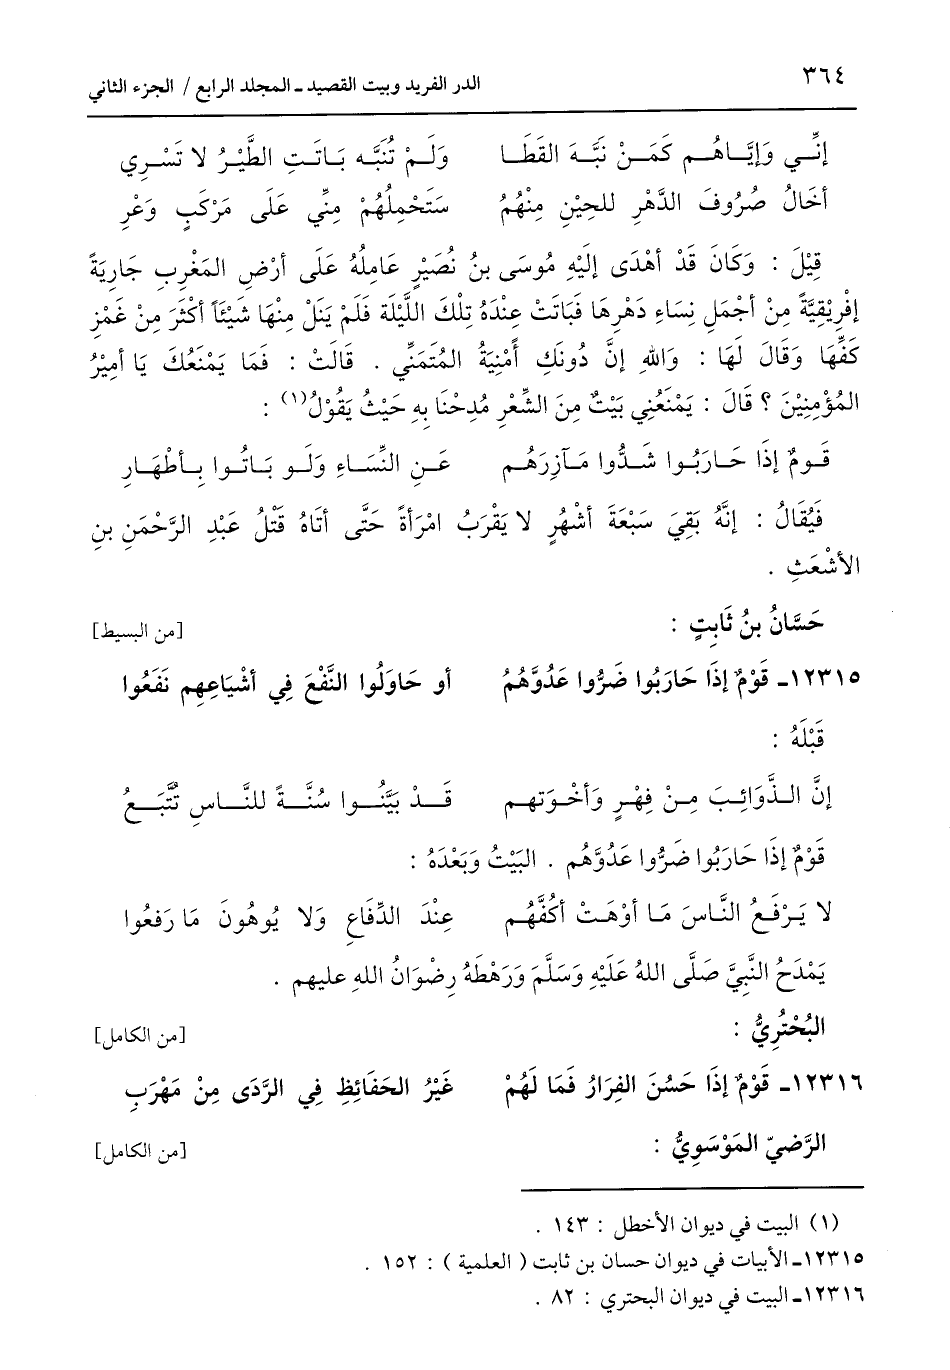 ٣٦٤ الدر الفريد وبيت القصيد ـ المجلد الرابع / الجزء الثاني
إنِّي وَإيَّاهُم كَمَنْ نبَّهَ القَطَا وَلَمْ تُنَبَّه بَاتَتِ الطَّيْرُ لا تَسْرِي
أخَالُ صُرُوفَ الدَّهْرِ للحِيْنِ مِنْهُمُ سَتَحْمِلُهُمْ مِنِّي عَلَى مَرْكَبٍ وَعْرِ
قِيْلَ : وَكَانَ قَدْ أهْدَى إلَيْهِ مُوسَى بنُ نُصَيْرٍ عَامِلُهُ عَلَى أرْضِ المَغْرِبِ جَارِيَةً
إفْرِيْقِيَّةً مِنْ أجْمَلِ نِسَاءِ دَهْرِهَا فَبَاتَتْ عِنْدَهُ تِلْكَ اللَّيْلَةَ فَلَمْ يَنَلْ مِنْهَا شَيْئَاً أكْثَرَ مِنْ غَمْزِ
كَفِّهَا وَقَالَ لَهَا : وَاللهِ إنَّ دُونَكِ أمْنِيَةُ المُتَمَنِّي . قَالَتْ : فَمَا يَمْنَعُكَ يَا أمِيْرُ
المُؤْمِنِيْنَ ؟ قَالَ : يَمْنَعُنِي بَيْتٌ مِنَ الشِّعْرِ مُدِحْنَا بِهِ حَيْثُ يَقُوْلُ(١) :
قَومٌ إذَا حَارَبُوا شَدُّوا مَآزِرَهُم عَنِ النِّسَاءِ وَلَو بَاتُوا بِأطْهَارِ
فَيُقَالُ : إنَّهُ بَقِيَ سَبْعَةَ أشْهُرٍ لا يَقْرَبُ امْرَأةً حَتَّى أتَاهُ قَتْلُ عَبْدِ الرَّحْمَنِ بنِ
الأشْعَثِ .
حَسَّانُ بنُ ثَابِتٍ : [من البسيط]
١٢٣١٥ـ قَوْمٌ إذَا حَارَبُوا ضَرُّوا عَدُوَّهُمُ أو حَاوَلُوا النَّفْعَ فِي أشْيَاعِهِم نَفَعُوا
قَبْلَهُ :
إنَّ الذَّوَائِبَ مِنْ فِهْرٍ وَأخْوَتهِم قَدْ بَيَّنُوا سُنَّةً للنَّاسِ تُتَّبَعُ
قَوْمٌ إذَا حَارَبُوا ضَرُّوا عَدُوَّهُم . البَيْتُ وَبَعْدَهُ :
لا يَرْفَعُ النَّاسَ مَا أوْهَتْ أكُفُّهُم عِنْدَ الدِّفَاعِ وَلا يُوهُونَ مَا رَفعُوا
يَمْدَحُ النَّبِيَّ صَلَّى اللهُ عَلَيْهِ وَسَلَّمَ وَرَهْطَهُ رِضْوَانُ اللهِ عليهم .
البُحْتُرِيُّ : [من الكامل]
١٢٣١٦ـ قَوْمٌ إذَا حَسُنَ الفِرَارُ فَمَا لَهُمْ غَيْرُ الحَفَائِظِ فِي الرَّدَى مِنْ مَهْرَبِ
الرَّضيّ المَوْسَوِيُّ : [من الكامل]
(١) البيت في ديوان الأخطل : ١٤٣ .
١٢٣١٥ـ الأبيات في ديوان حسان بن ثابت ( العلمية ) : ١٥٢ .
١٢٣١٦ـ البيت في ديوان البحتري : ٨٢ .